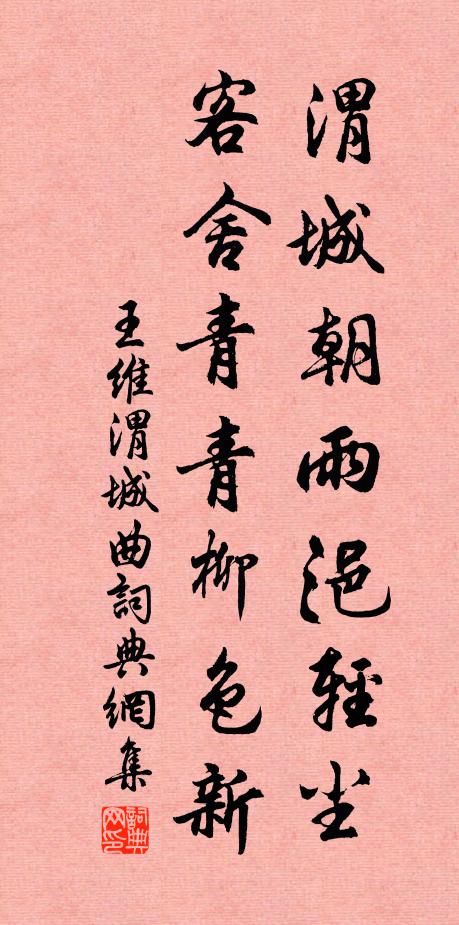 渭城朝雨浥輕尘
客舍青青柳色新
王維渭城曲詞典網集
詞典网印